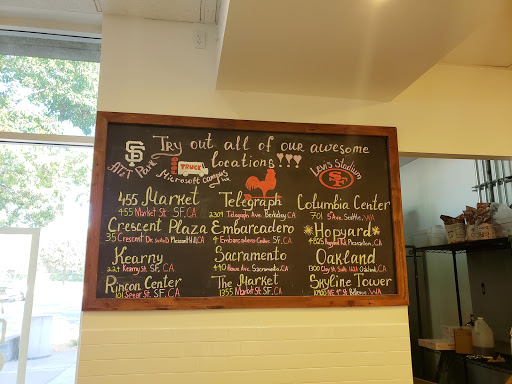 Try out all of our awesome
locations!!!
SF
AT&T Park
FOOD TRUCK
Microsoft campus
WA
Levi's Stadium
SF
455 Market
455 Market St. SF, CA
Telegraph
2309 Telegraph Ave. Berkeley, CA
Columbia Center
701 5th Ave. Seattle, WA
Crescent Plaza
35 Crescent Dr. Pleasant Hill, CA
Embarcadero
4 Embarcadero Center SF, CA
*Hopyard*
4825 Hopyard Rd. Pleasanton, CA
Kearny
224 Kearny St. SF, CA
Sacramento
440 Howe Ave. Sacramento, CA
Oakland
1300 Clay St. Oakland, CA
Rincon Center
101 Spear St. SF, CA
The Market
1355 Market St. SF, CA
Skyline Tower
10900 NE 4th St. Bellevue, WA